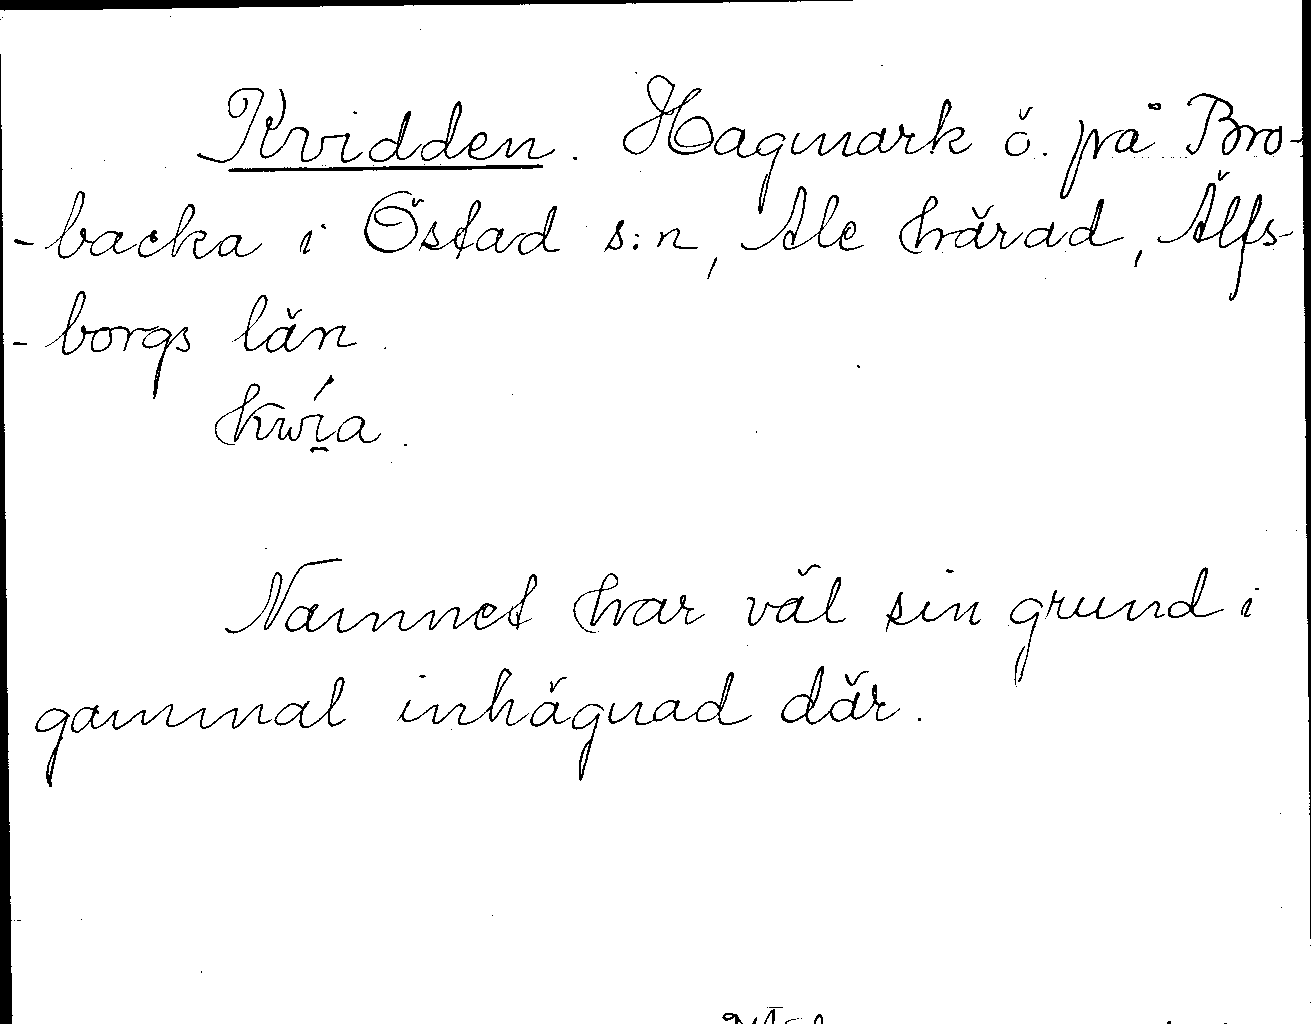 Kvidden. Hagmark ö. på Bro-
-backa i Östad s:n, Ale härad, Älfs-
-borgs län.
kwía.
Namnet har väl sin grund i
gammal inhägnad där.